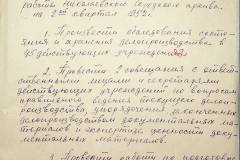 работы Николаевского городского архива
на 2 квартал 1942.
1. Произвести обследование состо-
яния и хранения делопроизводства в
45 действующих учреждений.
2. Провести 2 совещания с ответ-
ственными лицами и секретарями
действующих учреждений по вопросам
правильного ведения текущего дело-
производства, упорядочения законченных
делопроизводством документальных ма-
териалов и экспертизе ценности доку-
ментальных материалов.
3. Провести работу по подготовке